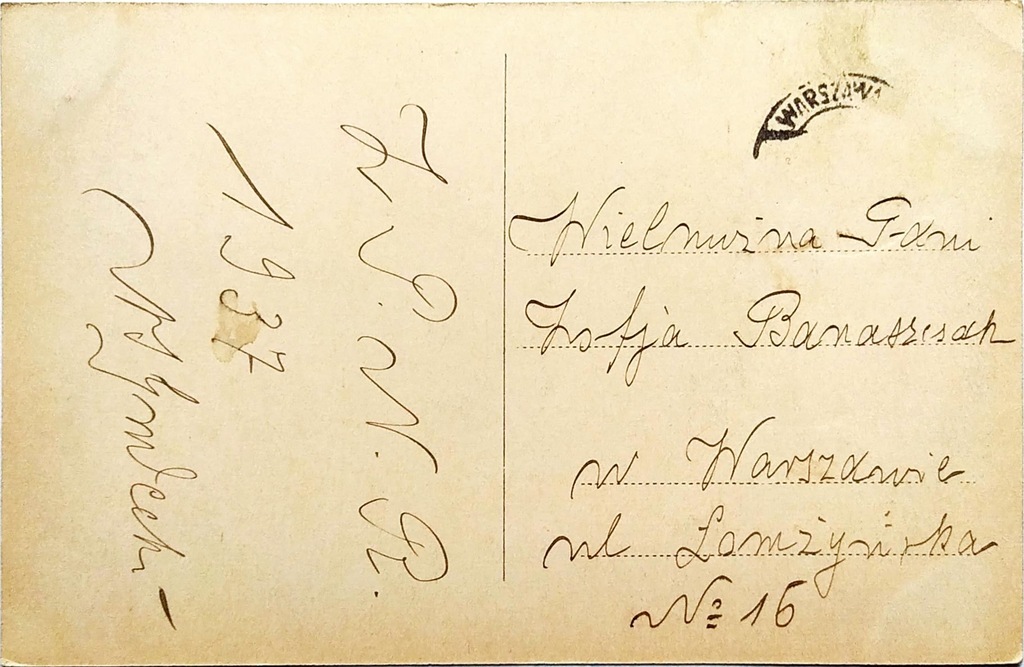 Z P. N. R.
1937
WARSZAWA
Wielmożna Pani
Zofja Banaszczak
w Warszawie
ul Łomżyńska
№ 16